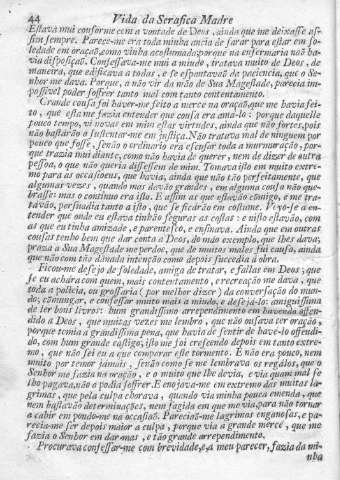 44 Vida da Serafica Madre
Estava mui conforme com a vontade de Deos, ainda que me deixasse as-
sim sempre. Parece-me era toda minha ancia de sarar para estar em so-
ledade em oraçaõ, como vinha acostumada, porque na enfermaria naõ ha-
via disposiçaõ. Confessava-me mui a miudo, tratava muito de Deos, de
maneira, que edificava a todas, e se espantavaõ da paciencia, que o Se-
nhor me dava. Porque, a naõ vir da maõ de Sua Magestade, parecia im-
possivel poder soffrer tanto mal com tanto contentamento.
Grande cousa foi haver-me feito a merce na oraçaõ, que me havia fei-
to, que esta me fazia entender que cousa era ama-lo: porque daquelle
pouco tempo, vi novas em mim estas virtudes, ainda que naõ fortes, pois
naõ bastáraõ a sustentar-me em justiça. Naõ tratava mal de ninguem por
pouco que fosse, senaõ o ordinario era escusar toda a murmuraçaõ, por-
que trazia mui diante, como naõ havia de querer, nem de dizer de outra
pessoa, o que naõ queria dissessem de mim. Tomava isto em muito extre-
mo para as occasioens, que havia, ainda que naõ taõ perfeitamente, que
algumas vezes, quando mas davaõ grandes, em alguma cousa naõ que-
brasse: mas o continuo era isto. E assim as que estavaõ cõmigo, e me tra-
tavaõ, persuadia tanto a isto, que se ficáraõ em costume. Veyo-se a en-
tender que onde eu estava tinhaõ seguras as costas: e nisto estavaõ, com
as que eu tinha amizade, e parentesco, e ensinava. Ainda que em outras
cousas tenho bem que dar conta a Deos, do máo exemplo, que lhes dava;
praza a Sua Magestade me perdoe, que de muitos males fui causa, ainda
que naõ com taõ dánada intençaõ como depois succedia a obra.
Ficou-me desejo de soledade, amiga de tratar, e fallar em Deos; que
se eu achára com quem, mais contentamento, e recreaçaõ me dava, que
toda a policia, ou grossaria (por melhor dizer) da conversaçaõ do mun-
do; cõmungar, e confessar muito mais a miudo, e desejá-lo: amiguissima
de ler bons livros: hum grandissimo arrependimento em havendo affen-
dido a Deos, que muitas vezes me lembro, que naõ ousava ter oraçaõ;
porque temia a grandissima pena, que havia de sentir de havê-lo offendi-
do, com hum grande castigo, isto me foi crescendo depois em tanto extre-
mo, que naõ sei eu a que comparar esse tormento. E naõ era pouco, nem
muito por temor jámais, senaõ como se me lembrava os regálos, que o
Senhor me fazia na oraçaõ, e o muito que lhe devia, e via quam mal se
lho pagava, naõ o podia soffrer. E enojava-me em extremo das muitas la-
grimas, que pela culpa chorava, quando via minha pouca emenda, que
nem bastavaõ determinações, nem fadiga em que me via, para naõ tornar
a cahir em pondo-me na occasiaõ. Pareciaõ-me lagrimas enganosas, e pa-
recia-me ser depois maior a culpa, porque via a grande mercê, que me
fazia o Senhor em dar-mas, e taõ grande arrependimento.
Procurava confessar-me com brevidade, e, a meu parecer, fazia da mi-
nha